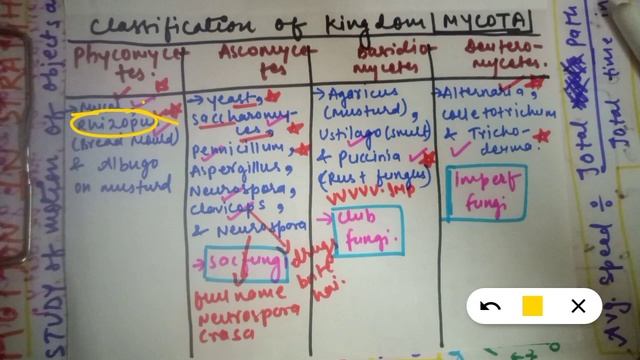 Classification of Kingdom MYCOTA
Phycomyce-
tes.
Ascomyce-
tes
Basidio-
mycetes
Deutero-
mycetes.
Rhizopus
(Bread Mould)
& Albugo
on musturd
→ yeast,
Saccharomy-
ces,
Pennicillum,
Aspergillus,
Neurospora,
Claviceps,
& Neurospora
→ Sac fungi
full name
Neurospora
crasa
drugs
hai.
→ Agaricus
(musturd),
Ustilago (smut)
& Puccinia
(Rust fungus)
VVVV. Imp
→ Club
fungi.
→ Alternaria,
colletotrichum
& Tricho-
derma.
Imperf
fungi
STUDY of motion of objects
Avg. Speed ÷
Total Path
Total time in